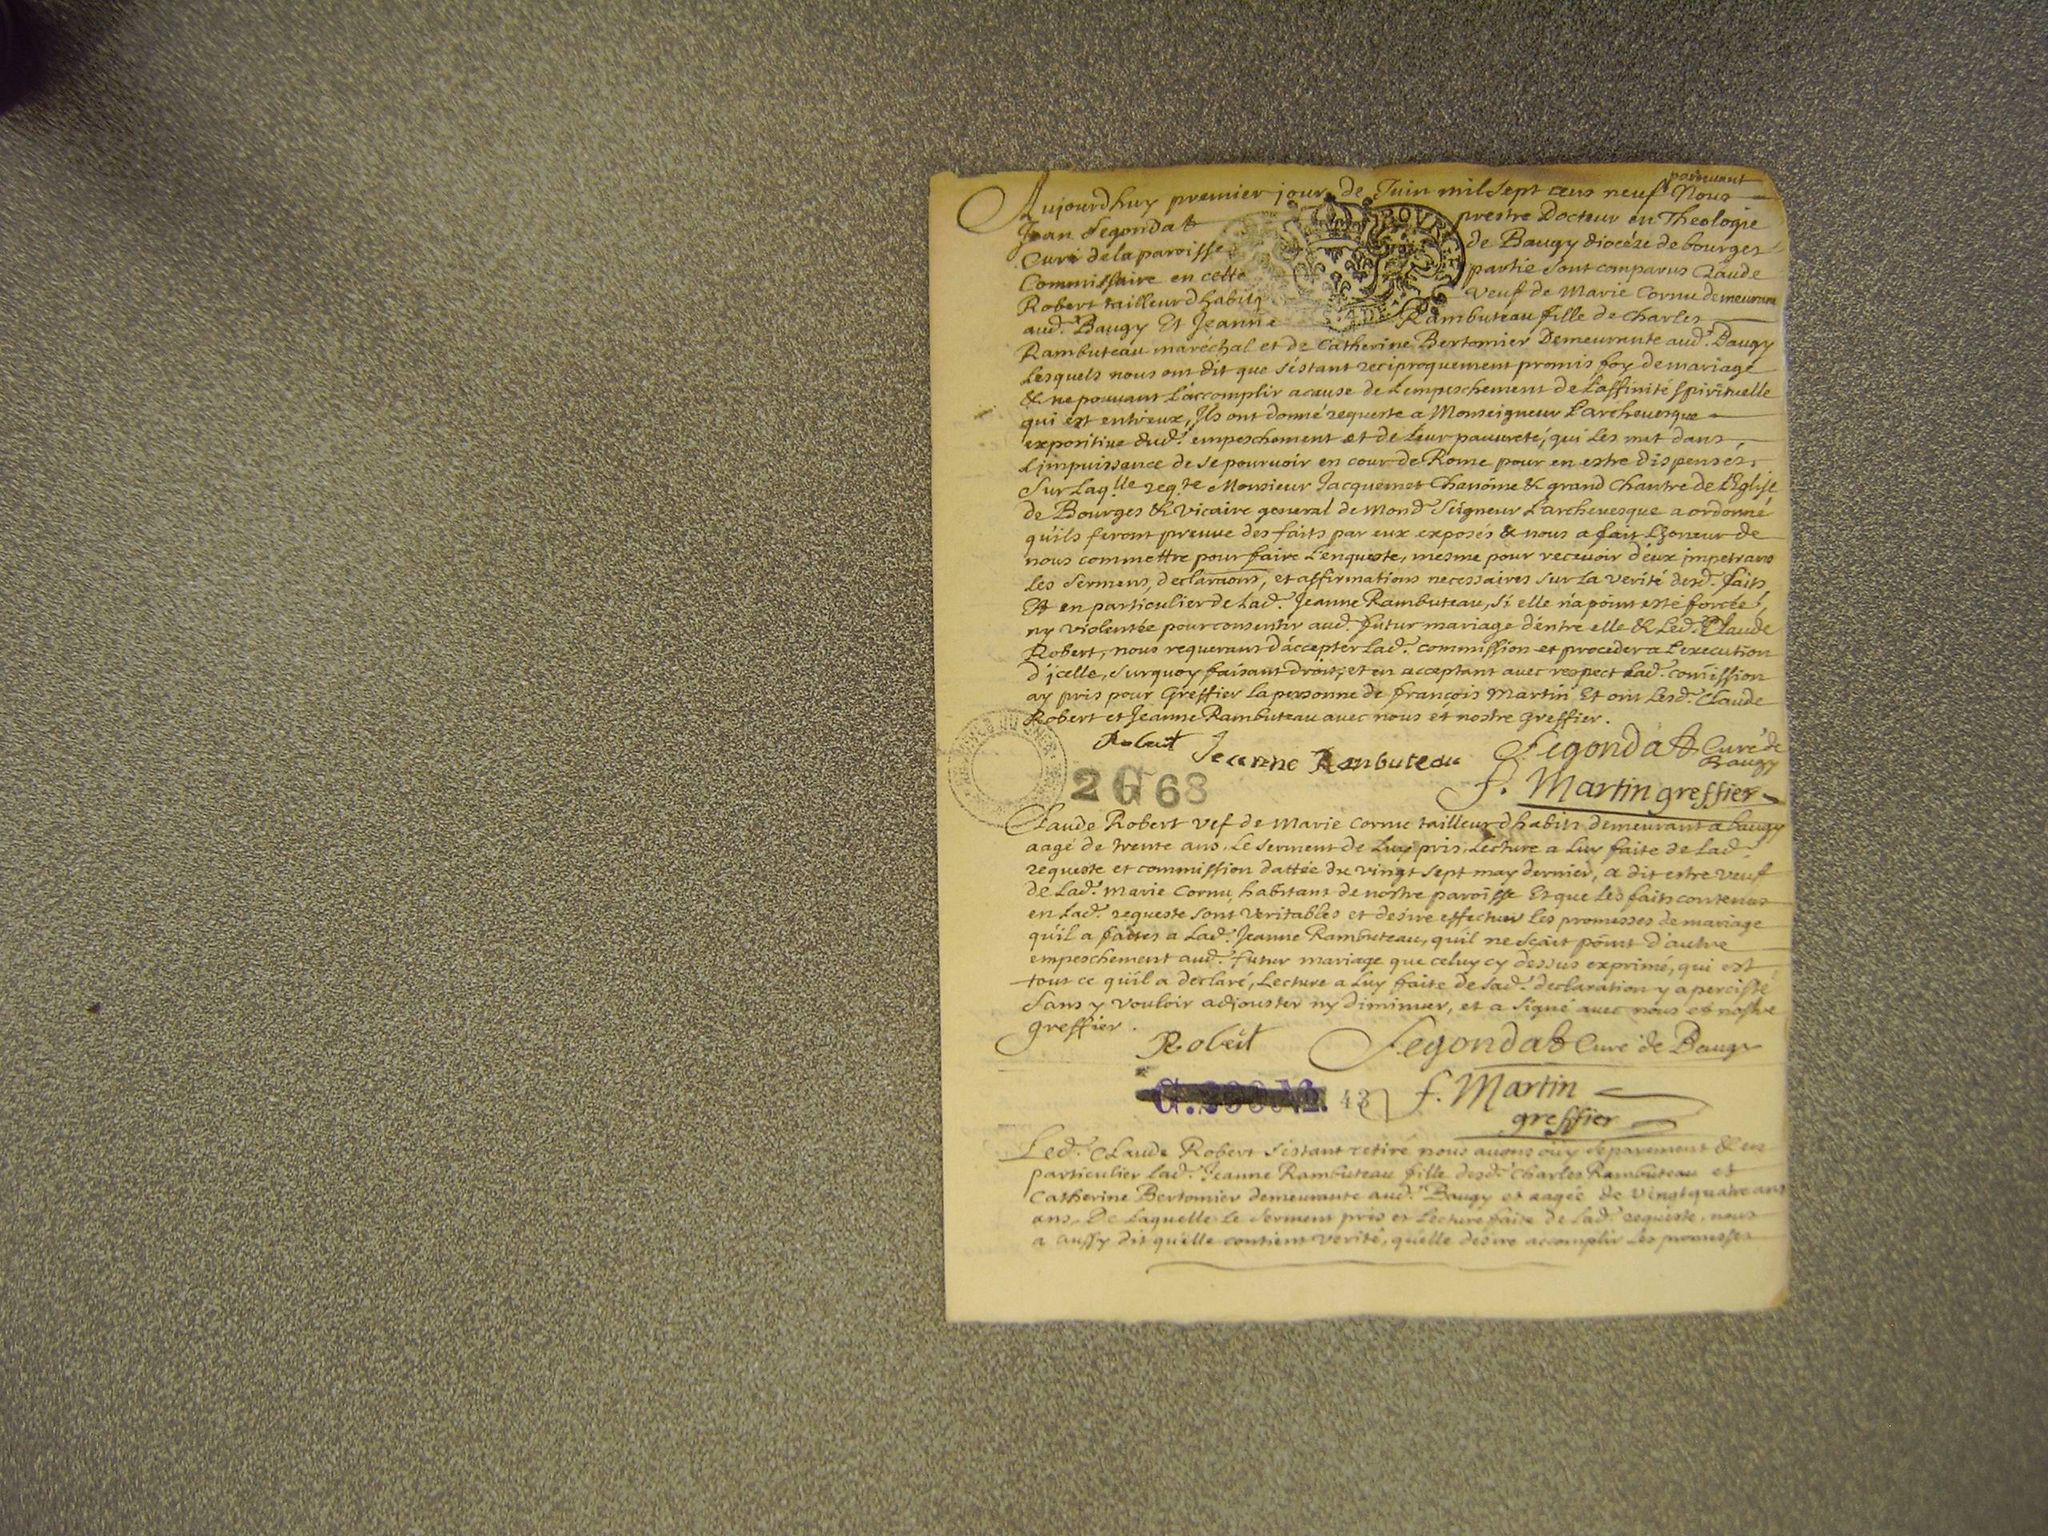 Aujourdhuy premier jour de Juin mil sept cens neuf pardevant Nous
Jean Segondat prestre Docteur en Theologie
Curé de la paroisse de Baugy diocéze de bourges
Commissaire en cette partie sont comparus Claude
Robert tailleur dhabits veuf de Marie Cornu demeurant
aud. Baugy Et Jeanne Rambuteau fille de Charles
Rambuteau maréchal et de Catherine Bertomier Demeurante aud. Baugy
Lesquels nous ont dit que s'éstant reciproquement promis foy de mariage
& ne pouvant L'accomplir a cause de L'empeschement de L'affinité spirituelle
qui est entr'eux, Ils ont donné requeste a Monseigneur L'archevesque
expositive dud. empeschement et de Leur pauvreté, qui Les met dans
L'impuissance de se pourvoir en cour de Rome pour en estre dispensez,
Sur Laq.lle req.te Monsieur Jacquemet Chanoine & grand Chantre de L'Eglise
de Bourges & Vicaire general de Mond. Seigneur L'archevesque a ordonné
qu'ils feront preuve des faits par eux exposés & nous a fait L'honeur de
nous commettre pour faire L'enqueste, mesme pour recevoir d'eux impetrans
les sermens, declaraons, et affirmations necessaires sur La verité desd. faits,
Et en particulier de Lad. Jeanne Rambuteau, si elle n'a point esté forcée,
ny violentée pour consentir aud. futur mariage d'entre elle & Led. Claude
Robert, nous requerans d'accepter Lad. commission et proceder a L'execution
d'icelle, surquoy faisant droit, et en acceptant avec respect Lad. comission
ay pris pour Greffier la personne de françois Martin Et ont Lesd. Claude
Robert et Jeanne Rambuteau avec nous et nostre greffier.
Robert Jeanne Rambuteau Segondat Curé de
Baugy
2 G 68
f. Martin greffier
Claude Robert vef de Marie Cornu tailleur dhabits demeurant a baugy
aagé de trente ans, Le serment de Luy pris, Lecture a Luy faite de Lad.
requeste et commission dattée du vingt sept may dernier, a dit estre veuf
de Lad. Marie Cornu, habitant de nostre paroisse Et que Les faits contenus
en Lad. requeste sont veritables et desire effectuer les promesses de mariage
qu'il a faites a Lad. Jeanne Rambuteau, qu'il ne sçait point d'autre
empeschement aud. futur mariage que celuy cy dessus exprimé, qui est
tout ce qu'il a declaré, Lecture a Luy faite de sad. declaration y a percisté
sans y vouloir adjouster ny diminuer, et a signé avec nous et nostre
greffier.
Robert Segondat Curé de Baugy
43 f. Martin
greffier
Led. Claude Robert s'estant retiré nous avons ouy separement & en
particulier Lad. Jeanne Rambuteau fille desd. Charles Rambuteau et
Catherine Bertomier demeurante aud. Baugy et aagée de vingt quatre ans
ans, De Laquelle Le serment pris et Lecture faite de Lad. requeste, nous
a aussy dit qu'elle contient verité, qu'elle desire accomplir Les promesses